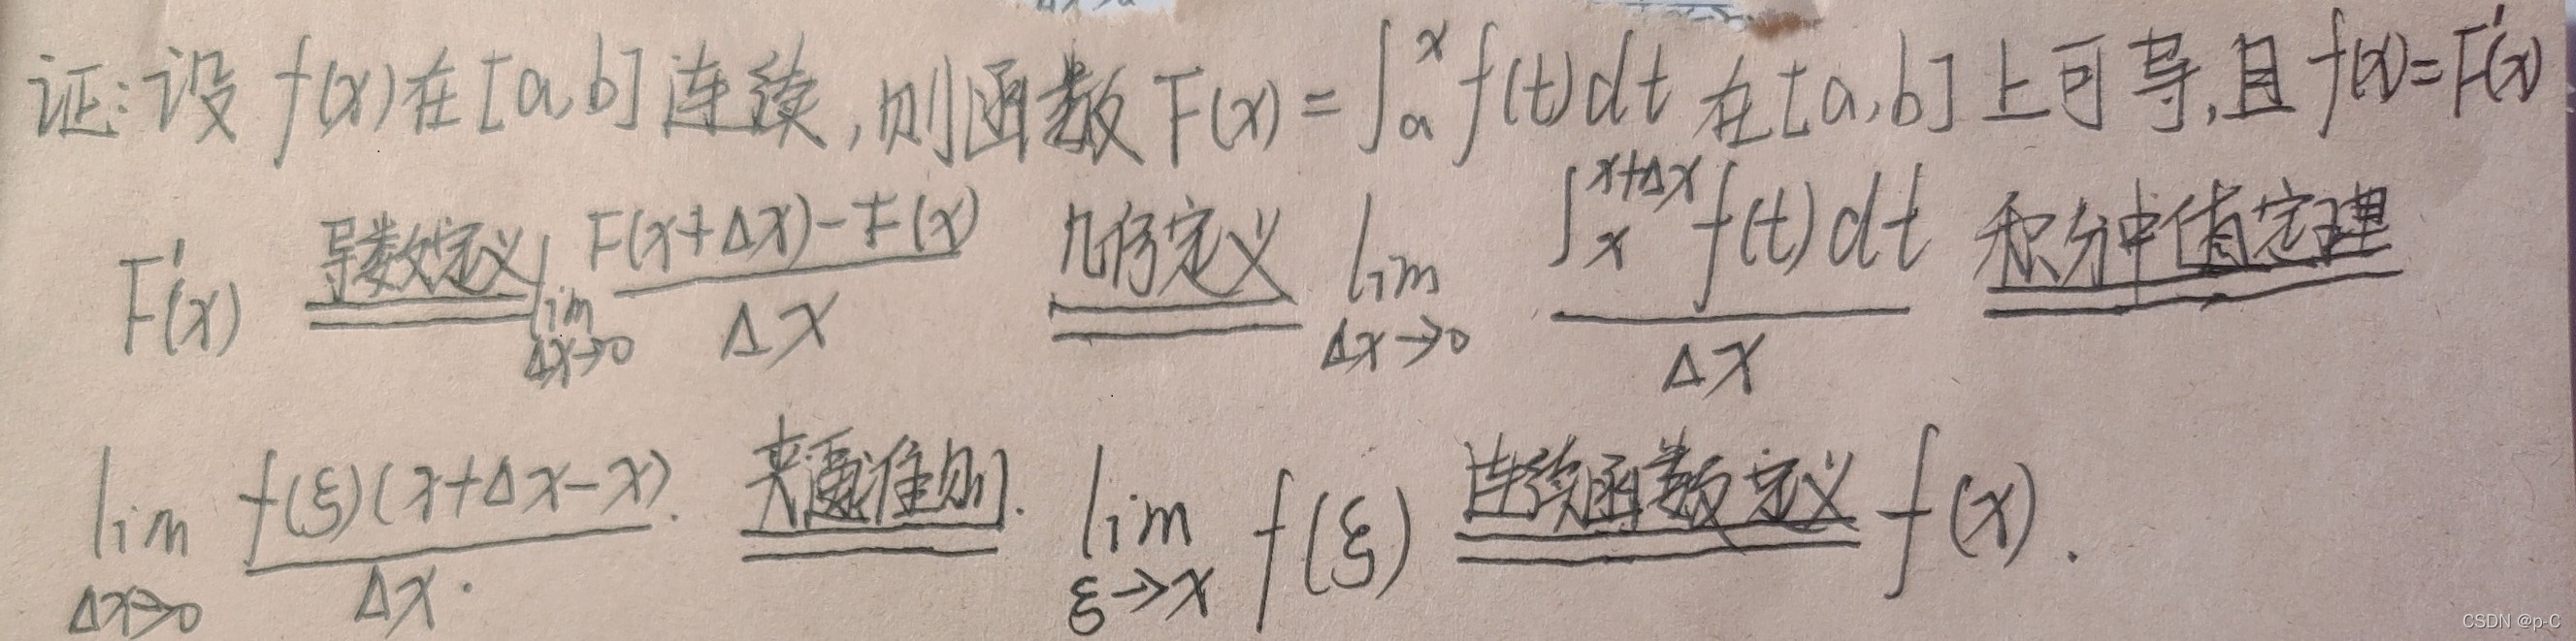 证:设 f(x)在[a,b]连续,则函数 F(x)=∫ₐˣ f(t)dt 在[a,b]上可导,且 f(x)=F'(x)
F'(x) 导数定义 lim Δx→0 F(x+Δx)-F(x) / Δx 几何定义 lim Δx→0 ∫ₓˣ⁺ᐞˣ f(t)dt / Δx 积分中值定理
lim Δx→0 f(ξ)(x+Δx-x). / Δx. 夹逼准则. lim ξ→x f(ξ) 连续函数定义 f(x).
CSDN @p-C